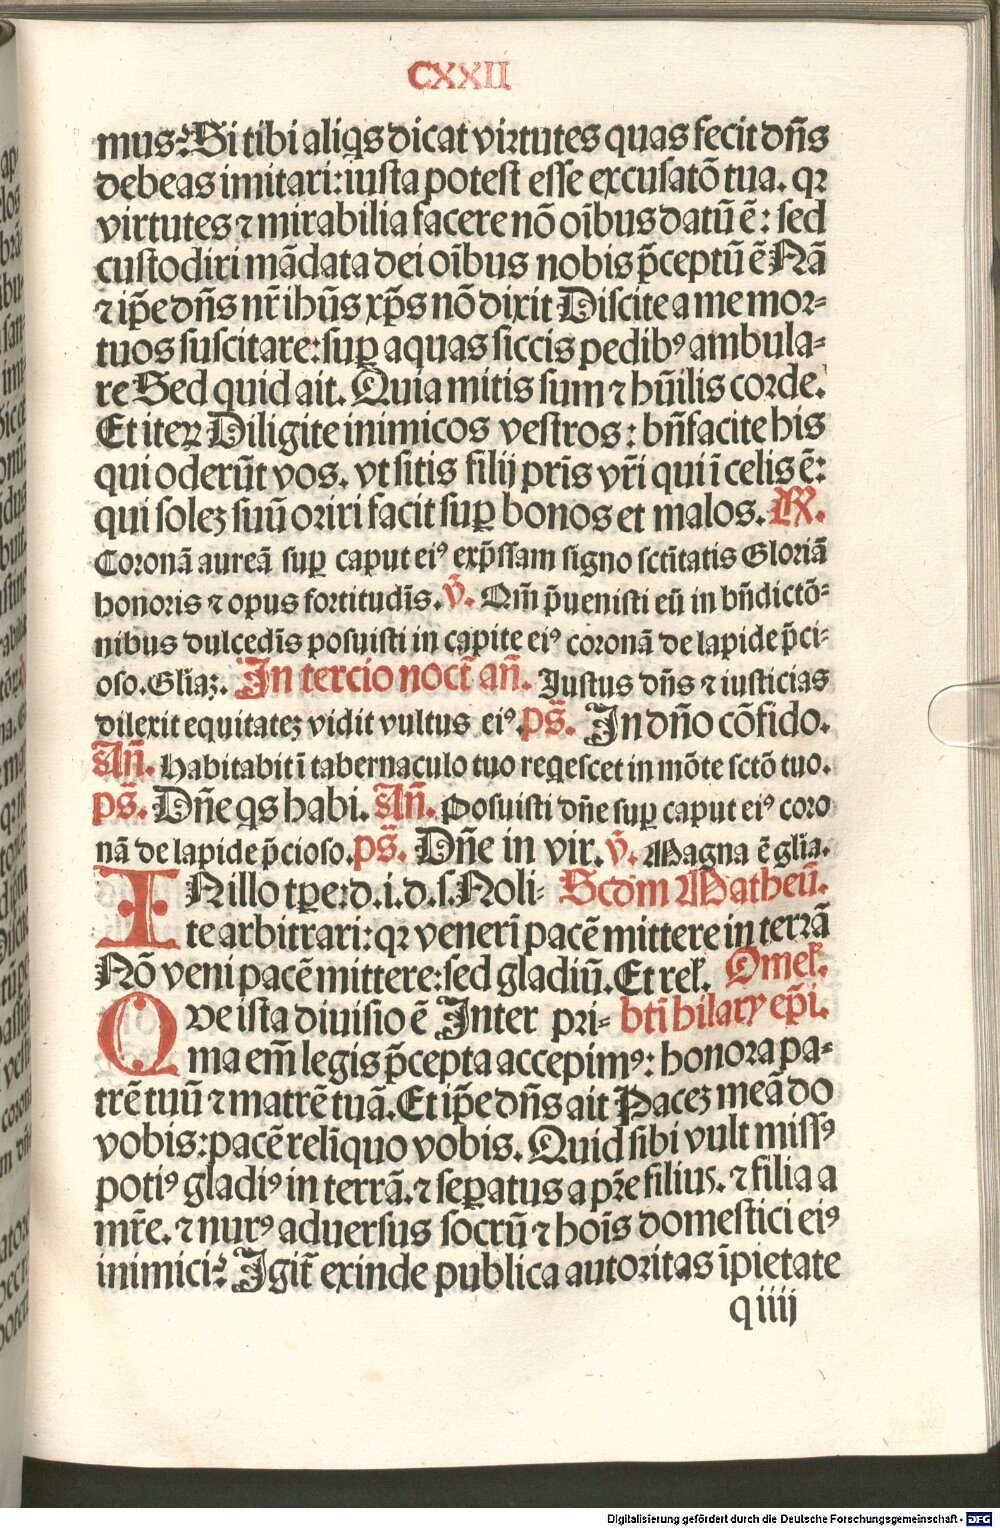 CXXII
mus? Si tibi aliq̄s dicat virtutes quas fecit dn̄s
debeas imitari: iusta potest esse excusatō tua. qꝛ
virtutes ⁊ mirabilia facere nō oībus datū ē: sed
custodiri mādata dei oībus nobis p̄ceptū ē Nā
⁊ ip̄e dn̄s nr̄ ihūs xp̄s nō dixit Discite a me mor⸗
tuos suscitare: suꝑ aquas siccis pedibꝰ ambula⸗
re Sed quid ait. Quia mitis sum ⁊ hūilis corde.
Et iteꝝ Diligite inimicos vestros: bn̄facite his
qui oderūt vos. vt sitis filij prīs vr̄i qui ī celis ē:
qui soleꝫ suū oriri facit suꝑ bonos et malos. ℟.
Coronā aureā suꝑ caput eiꝰ exp̄ssam signo sctītatis Gloriā
honoris ⁊ opus fortitudīs. v̄. Qm̄ p̄uenisti eū in bn̄dictō⸗
nibus dulcedīs posuisti in capite eiꝰ coronā de lapide p̄ci⸗
oso. Gliaꝫ. In tercio noct̄ an̄. Iustus dn̄s ⁊ iusticias
dilexit equitateꝫ vidit vultus eiꝰ. ps̄. In dn̄o cōfido.
An̄. Habitabit ī tabernaculo tuo reqescet in mōte sctō tuo.
ps̄. Dn̄e qs habi. An̄. Posuisti dn̄e suꝑ caput eiꝰ coro
nā de lapide p̄cioso. ps̄. Dn̄e in vir. v̄. Magna ē glia.
IN illo tꝑe: d. i. d. s. Noli⸗ Scdm Matheū.
te arbitrari: qꝛ venerī pacē mittere in terrā
Nō veni pacē mittere: sed gladiū. Et rel̄. Omel̄.
QVe ista diuisio ē Inter pri⸗ btī hilary ep̄i.
ma em̄ legis p̄cepta accepimꝰ: honora pa⸗
trē tuū ⁊ matrē tuā. Et ip̄e dn̄s ait Paceꝫ meā do
vobis: pacē relīquo vobis. Quid sibi vult missꝰ
potiꝰ gladiꝰ in terrā. ⁊ seꝑatus a pr̄e filius. ⁊ filia a
mr̄e. ⁊ nurꝰ aduersus socrū ⁊ hoīs domestici eiꝰ
inimici? Igit̄ exinde publica autoritas īpietate
q iiij
Digitalisierung gefördert durch die Deutsche Forschungsgemeinschaft - DFG